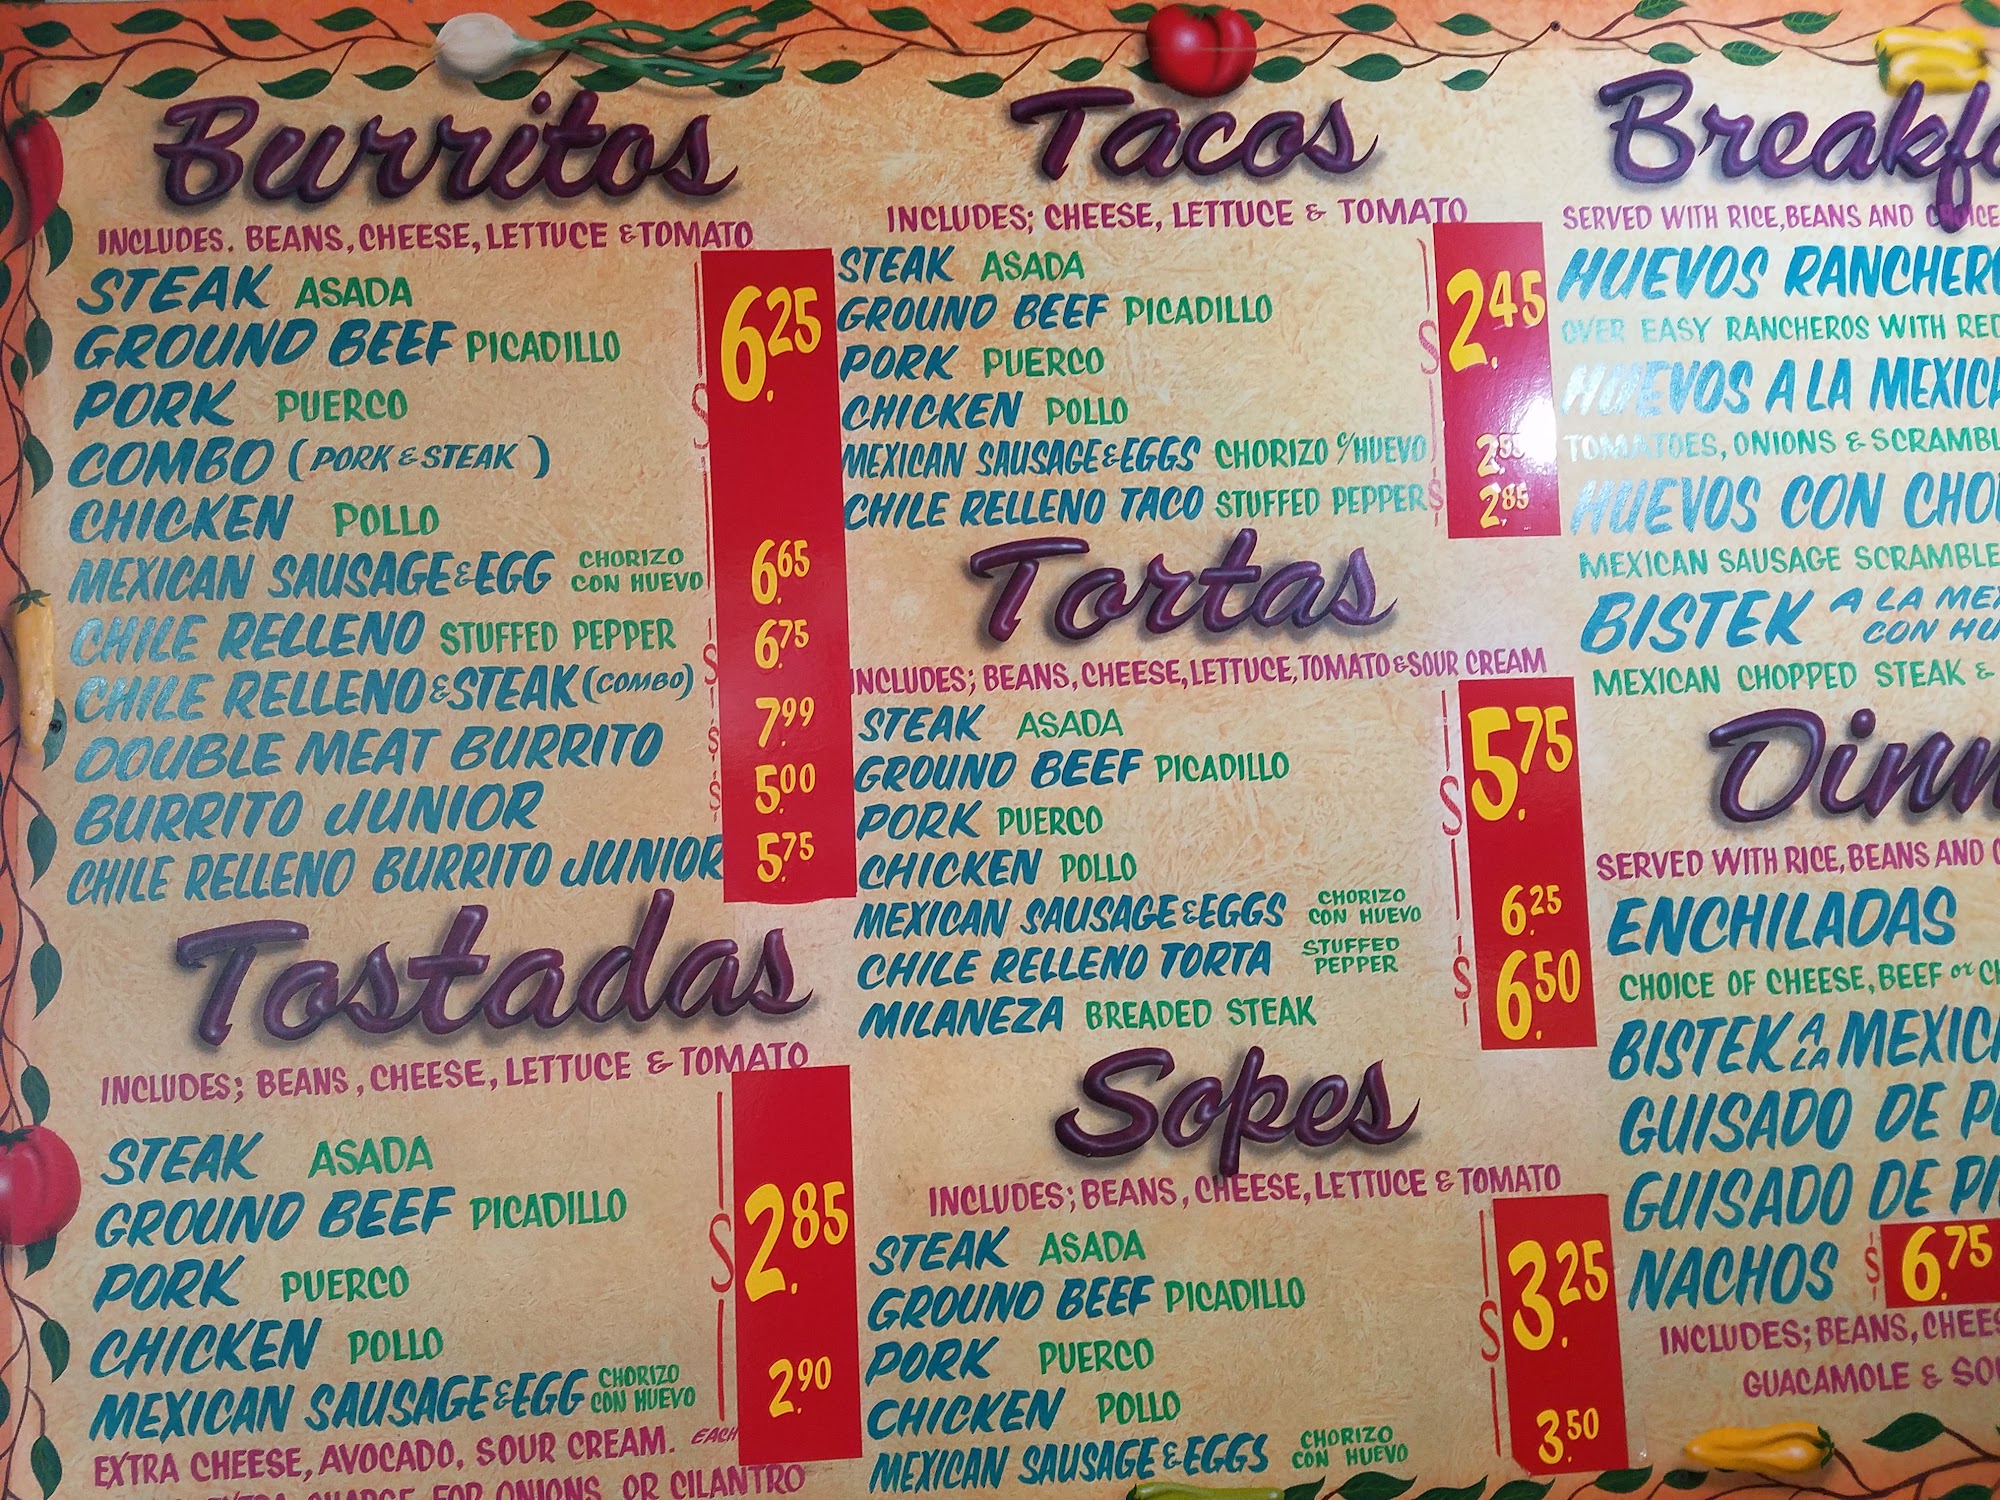 Burritos
INCLUDES. BEANS, CHEESE, LETTUCE & TOMATO
STEAK ASADA
GROUND BEEF PICADILLO
PORK PUERCO
$ 6.25
COMBO (PORK & STEAK)
CHICKEN POLLO
MEXICAN SAUSAGE & EGG CHORIZO CON HUEVO
6.65
CHILE RELLENO STUFFED PEPPER
$ 6.75
CHILE RELLENO & STEAK (COMBO)
DOUBLE MEAT BURRITO
$ 7.99
BURRITO JUNIOR
$ 5.00
CHILE RELLENO BURRITO JUNIOR
5.75
Tostadas
INCLUDES; BEANS, CHEESE, LETTUCE & TOMATO
STEAK ASADA
GROUND BEEF PICADILLO
$ 2.85
PORK PUERCO
CHICKEN POLLO
MEXICAN SAUSAGE & EGG CHORIZO CON HUEVO
2.90
EXTRA CHEESE, AVOCADO, SOUR CREAM. EACH
EXTRA CHARGE FOR ONIONS OR CILANTRO
Tacos
INCLUDES; CHEESE, LETTUCE & TOMATO
STEAK ASADA
GROUND BEEF PICADILLO
$ 2.45
PORK PUERCO
CHICKEN POLLO
MEXICAN SAUSAGE & EGGS CHORIZO C/HUEVO
CHILE RELLENO TACO STUFFED PEPPER $ 2.85
Tortas
INCLUDES; BEANS, CHEESE, LETTUCE, TOMATO & SOUR CREAM
STEAK ASADA
GROUND BEEF PICADILLO
$ 5.75
PORK PUERCO
CHICKEN POLLO
MEXICAN SAUSAGE & EGGS CHORIZO CON HUEVO
6.25
CHILE RELLENO TORTA STUFFED PEPPER
$ 6.50
MILANEZA BREADED STEAK
Sopes
INCLUDES; BEANS, CHEESE, LETTUCE & TOMATO
STEAK ASADA
GROUND BEEF PICADILLO
$ 3.25
PORK PUERCO
CHICKEN POLLO
MEXICAN SAUSAGE & EGGS CHORIZO CON HUEVO
3.50
Breakfa
SERVED WITH RICE, BEANS AND CHOICE
HUEVOS RANCHERO
OVER EASY RANCHEROS WITH RED
HUEVOS A LA MEXICA
TOMATOES, ONIONS & SCRAMBL
HUEVOS CON CHO
MEXICAN SAUSAGE SCRAMBLE
BISTEK A LA MEX
CON HU
MEXICAN CHOPPED STEAK &
Dinn
SERVED WITH RICE, BEANS AND C
ENCHILADAS
CHOICE OF CHEESE, BEEF or CH
BISTEK A LA MEXIC
GUISADO DE P
GUISADO DE P
NACHOS $ 6.75
INCLUDES; BEANS, CHEES
GUACAMOLE & SO